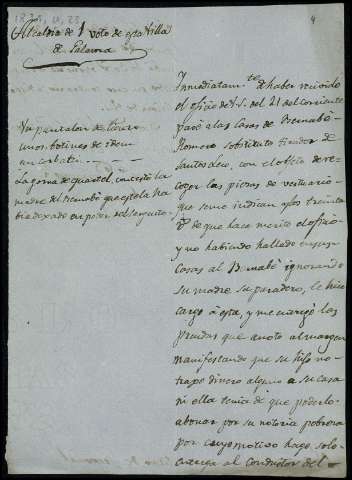 Alcaldía de 1 voto de esta Villa
de Palma
4
Un pantalon de lienzo
unos botines de idem
un corbatin
La gorra de cuartel, contestó la
madre del Bernabé que este la ha
bia dexado en poder del sargento
Inmediatam.te de haber recivido
el oficio de V.S. del 21 del corriente
pasé a las Casas de Bernabé
Romero sobstituto
con el obgeto de re
coger las piezas de vestuario
que se me indican y los treinta
de que hace merito el oficio
y no habiendo hallado en sus
Casas al Bernabé ignorando
su madre su paradero, le hice
cargo á esta, y me entregó las
prendas que anoto al margen
manifestando que su hijo no
trajo dinero alguno a su casa
ni ella tenia de que poderlo
abonar por su notoria pobreza
por cuyo motivo hago solo
entrega al conductor del